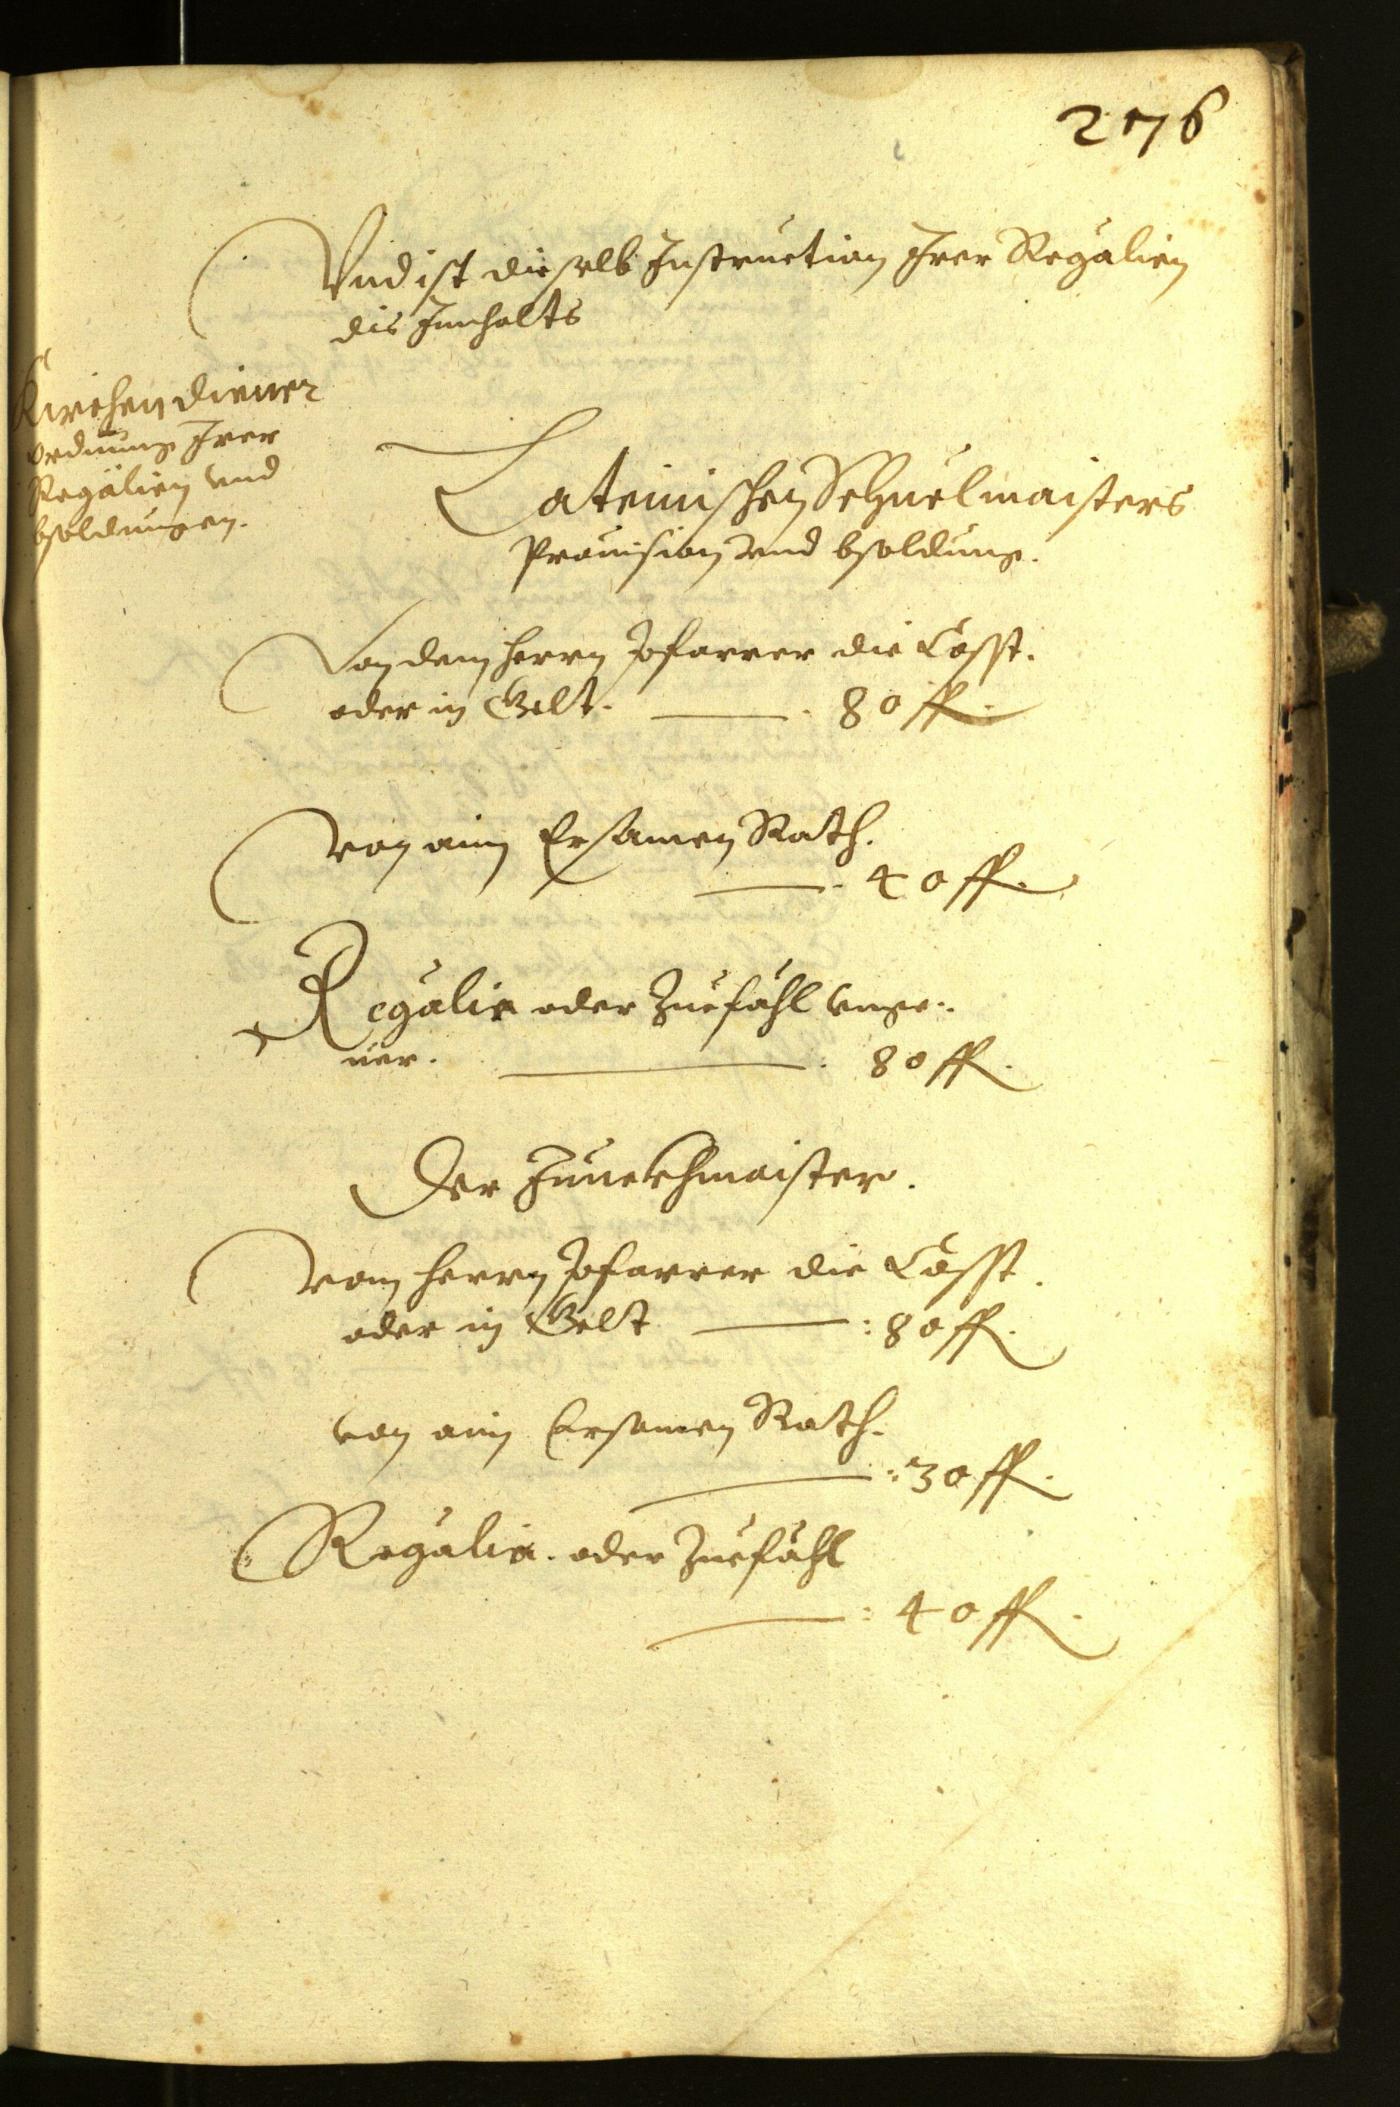 276
Vnd ist dieselb Instruction Irer Regalien
dis Innhalts
Kirchen diener
ordnung Irer
Regalien vnd
bsoldungen.
Lateinischen Schuelmaisters
Prouision vnd bsoldung.
Von dem herrn Pfarrer die Cosst.
oder in Gelt. 80 fl.
von aim Ersamen Rath.
40 fl.
Regalia oder Zuefähl vnge-
uer. 80 fl.
Der Junckhmaister.
vom herrn Pfarrer die Cosst.
oder in Gelt : 80 fl.
von aim Ersamen Rath.
: 30 fl.
Regalia. oder Zuefähl
: 40 fl.